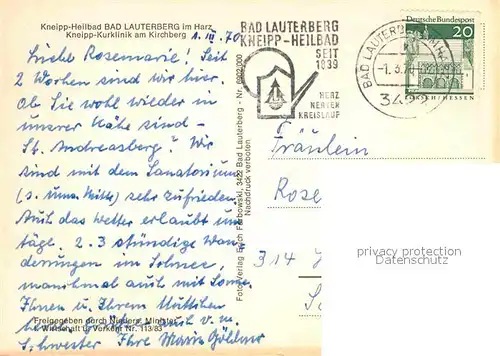 Kneipp-Heilbad BAD LAUTERBERG im Harz
Kneipp-Kurklinik am Kirchberg
1. III. 70
Liebe Rosemarie! Seit
2 Wochen sind wir hier.
Ob Sie wohl wieder in
unserer Nähe sind -
St. Andreasberg? Wir
sind mit dem Sanatorium
(s. Mitte) sehr zufrieden.
Auch das Wetter erlaubt uns
tägl. 2-3 stündige Wan-
derungen im Schnee,
manchmal auch mit Sonne.
Ihnen u. Ihrem Mütterchen
auch v. m.
Schwester Ihre Maria
Freigegeben durch Nieders. Minister
f. Wirtschaft u. Verkehr Nr. 113/83
Foto-Verlag Erich Farbowski, 3422 Bad Lauterberg - Nr.
Nachdruck verboten
BAD LAUTERBERG
KNEIPP-HEILBAD
SEIT
1839
HERZ
NERVEN
KREISLAUF
BAD LAUTERBERG IM HARZ
-1.3.70
Deutsche Bundespost
20
LORSCH/HESSEN
Fräulein
Rose
314
privacy protection
Datenschutz